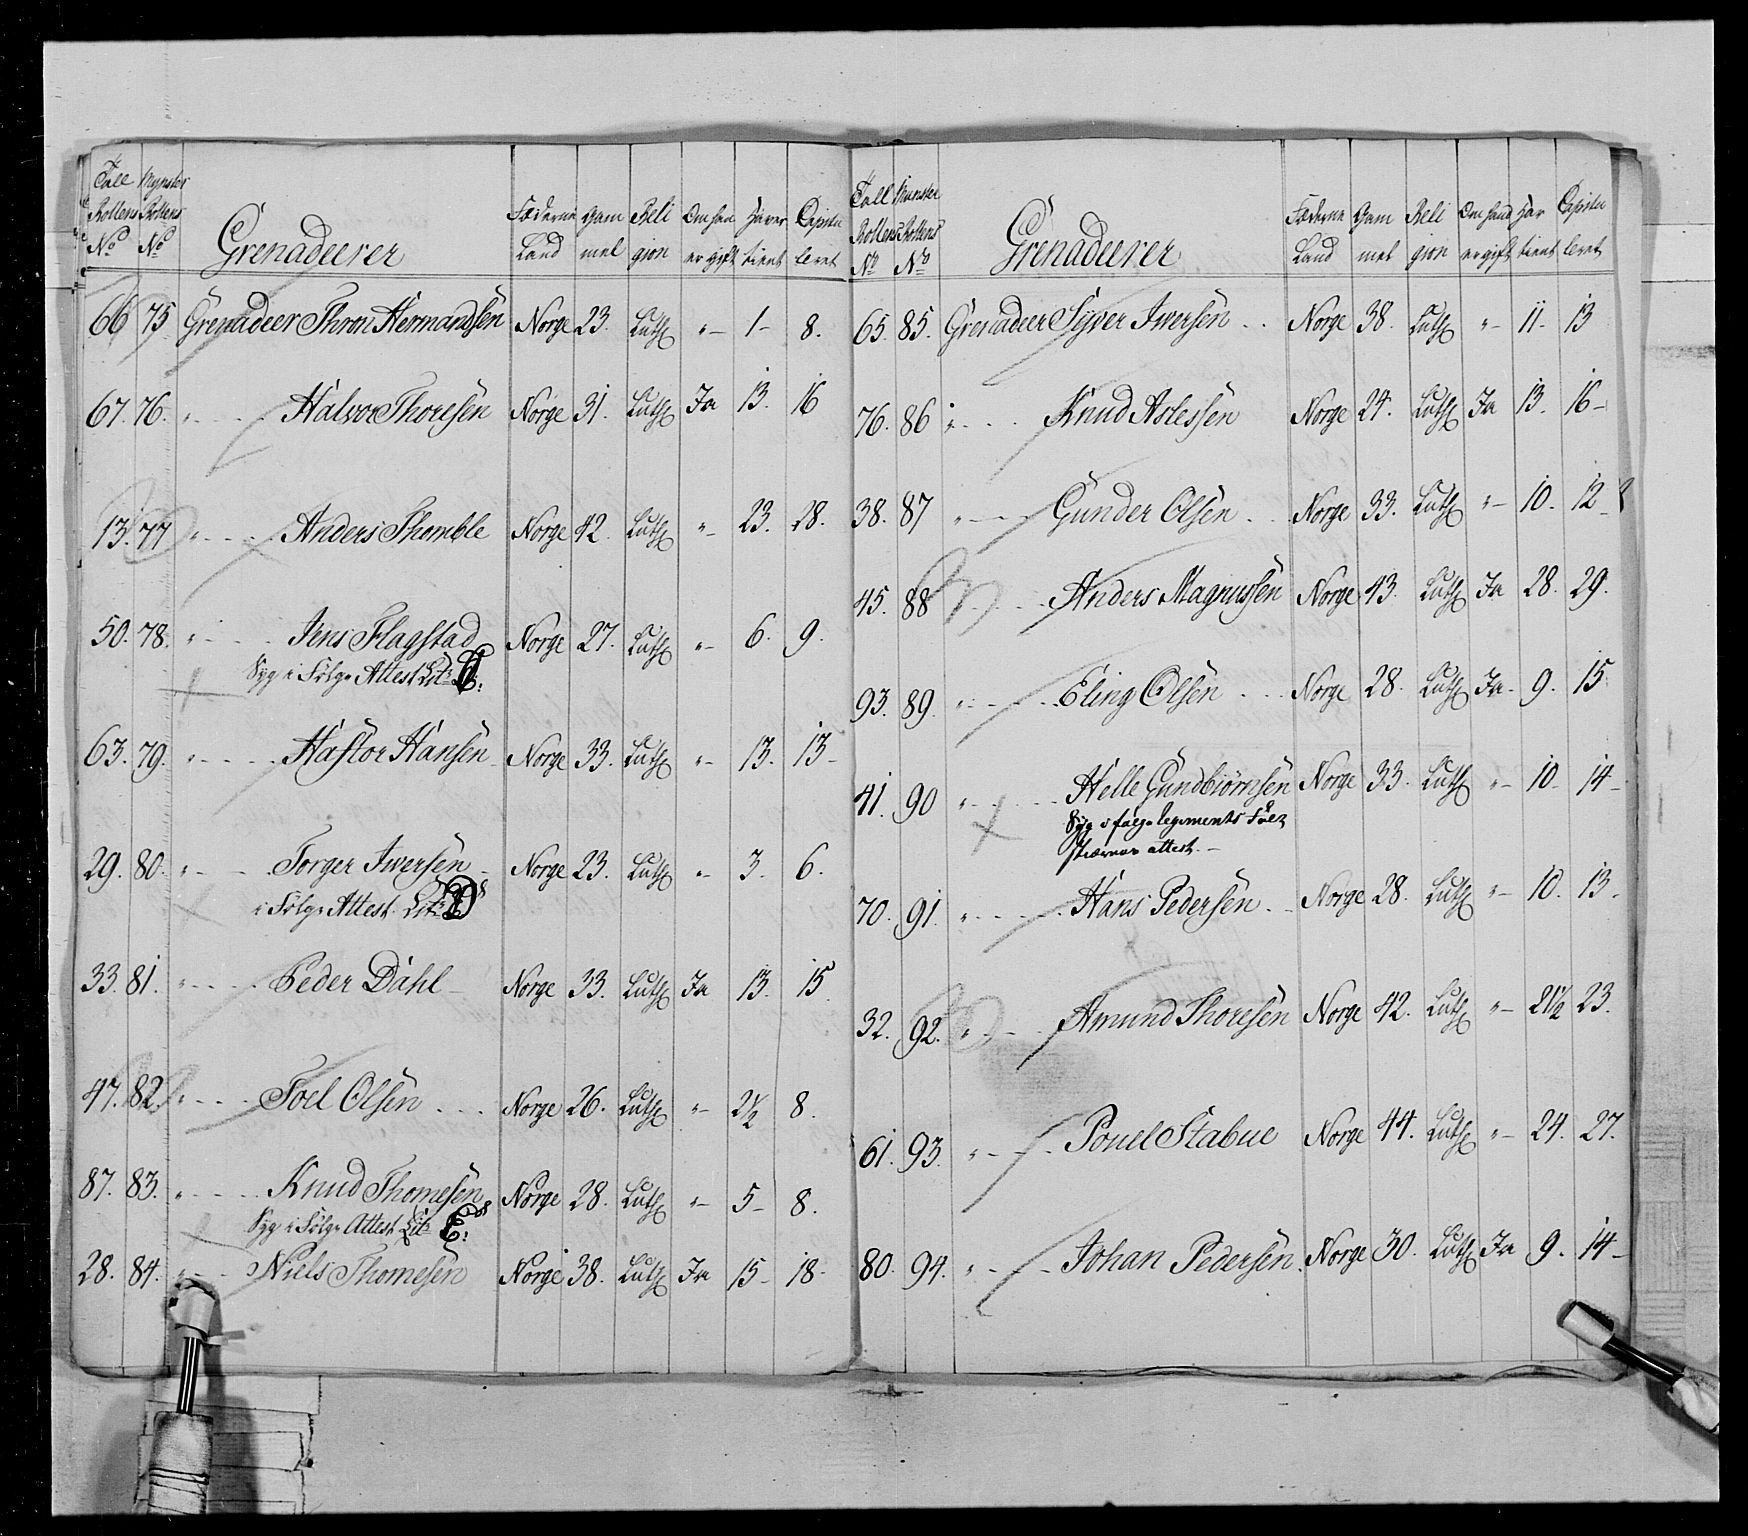 Tall Mynster Fæderne Gam Reli Om han Haver Capitu
Rollens Rollens Grenadeerer Land mel gion er gift tient leret
No No
66 75 Grenadeer Thron Hermandsen Norge 23. Luth " 1 8.
67. 76. " Halvor Thoresen Norge 31. Luth Ja 13. 16
13. 77 " Anders Thomble Norge 42 Luth " 23. 28.
50. 78. " Jens Flagstad Norge 27. Luth " 6. 9.
Syg i Følge Attest Lit:
63. 79. " Hastor Hansen Norge 33. Luth " 13. 13
29. 80. " Torger Iwersen Norge 23. Luth " 3. 6.
i Følge Attest Lit: D
33. 81. " Peder Dahl Norge 33. Luth Ja 13. 15
47. 82. " Joel Olsen Norge 26. Luth " 2½ 8.
87. 83. " Knud Thomesen Norge 28. Luth " 5 8.
Syg i Følge Attest Lit: E:
28. 84. " Niels Thomesen Norge 38. Luth Ja 15 18
Tall Munster Fæderne Gam Reli Om hand Har Capitu
Rollens Rollens Grenadeerer Land mel gion er gift tient leret
No No
65. 85. Grenadeer Syver Iwersen Norge 38. Luth " 11 13
76. 86 " Knud Aslessen Norge 24. Luth Ja 13. 16
38. 87 " Gunder Olsen Norge 33. Luth " 10. 12
45. 88 " Anders Magnussen Norge 43. Luth Ja 28. 29.
93. 89. " Eling Olsen Norge 28. Luth Ja 9. 15
41. 90 " Helle Gundbiørnsen Norge 33. Luth " 10 14
Syg i følge Regements Felt
skiærner attest.
70. 91. " Hans Pedersen Norge 28. Luth " 10. 13.
32. 92. " Amund Thoresen Norge 42. Luth " 21½ 23.
61. 93. " Pouel Stabue Norge 44. Luth " 24. 27.
80. 94. " Johan Pedersen Norge 30. Luth Ja 9. 14